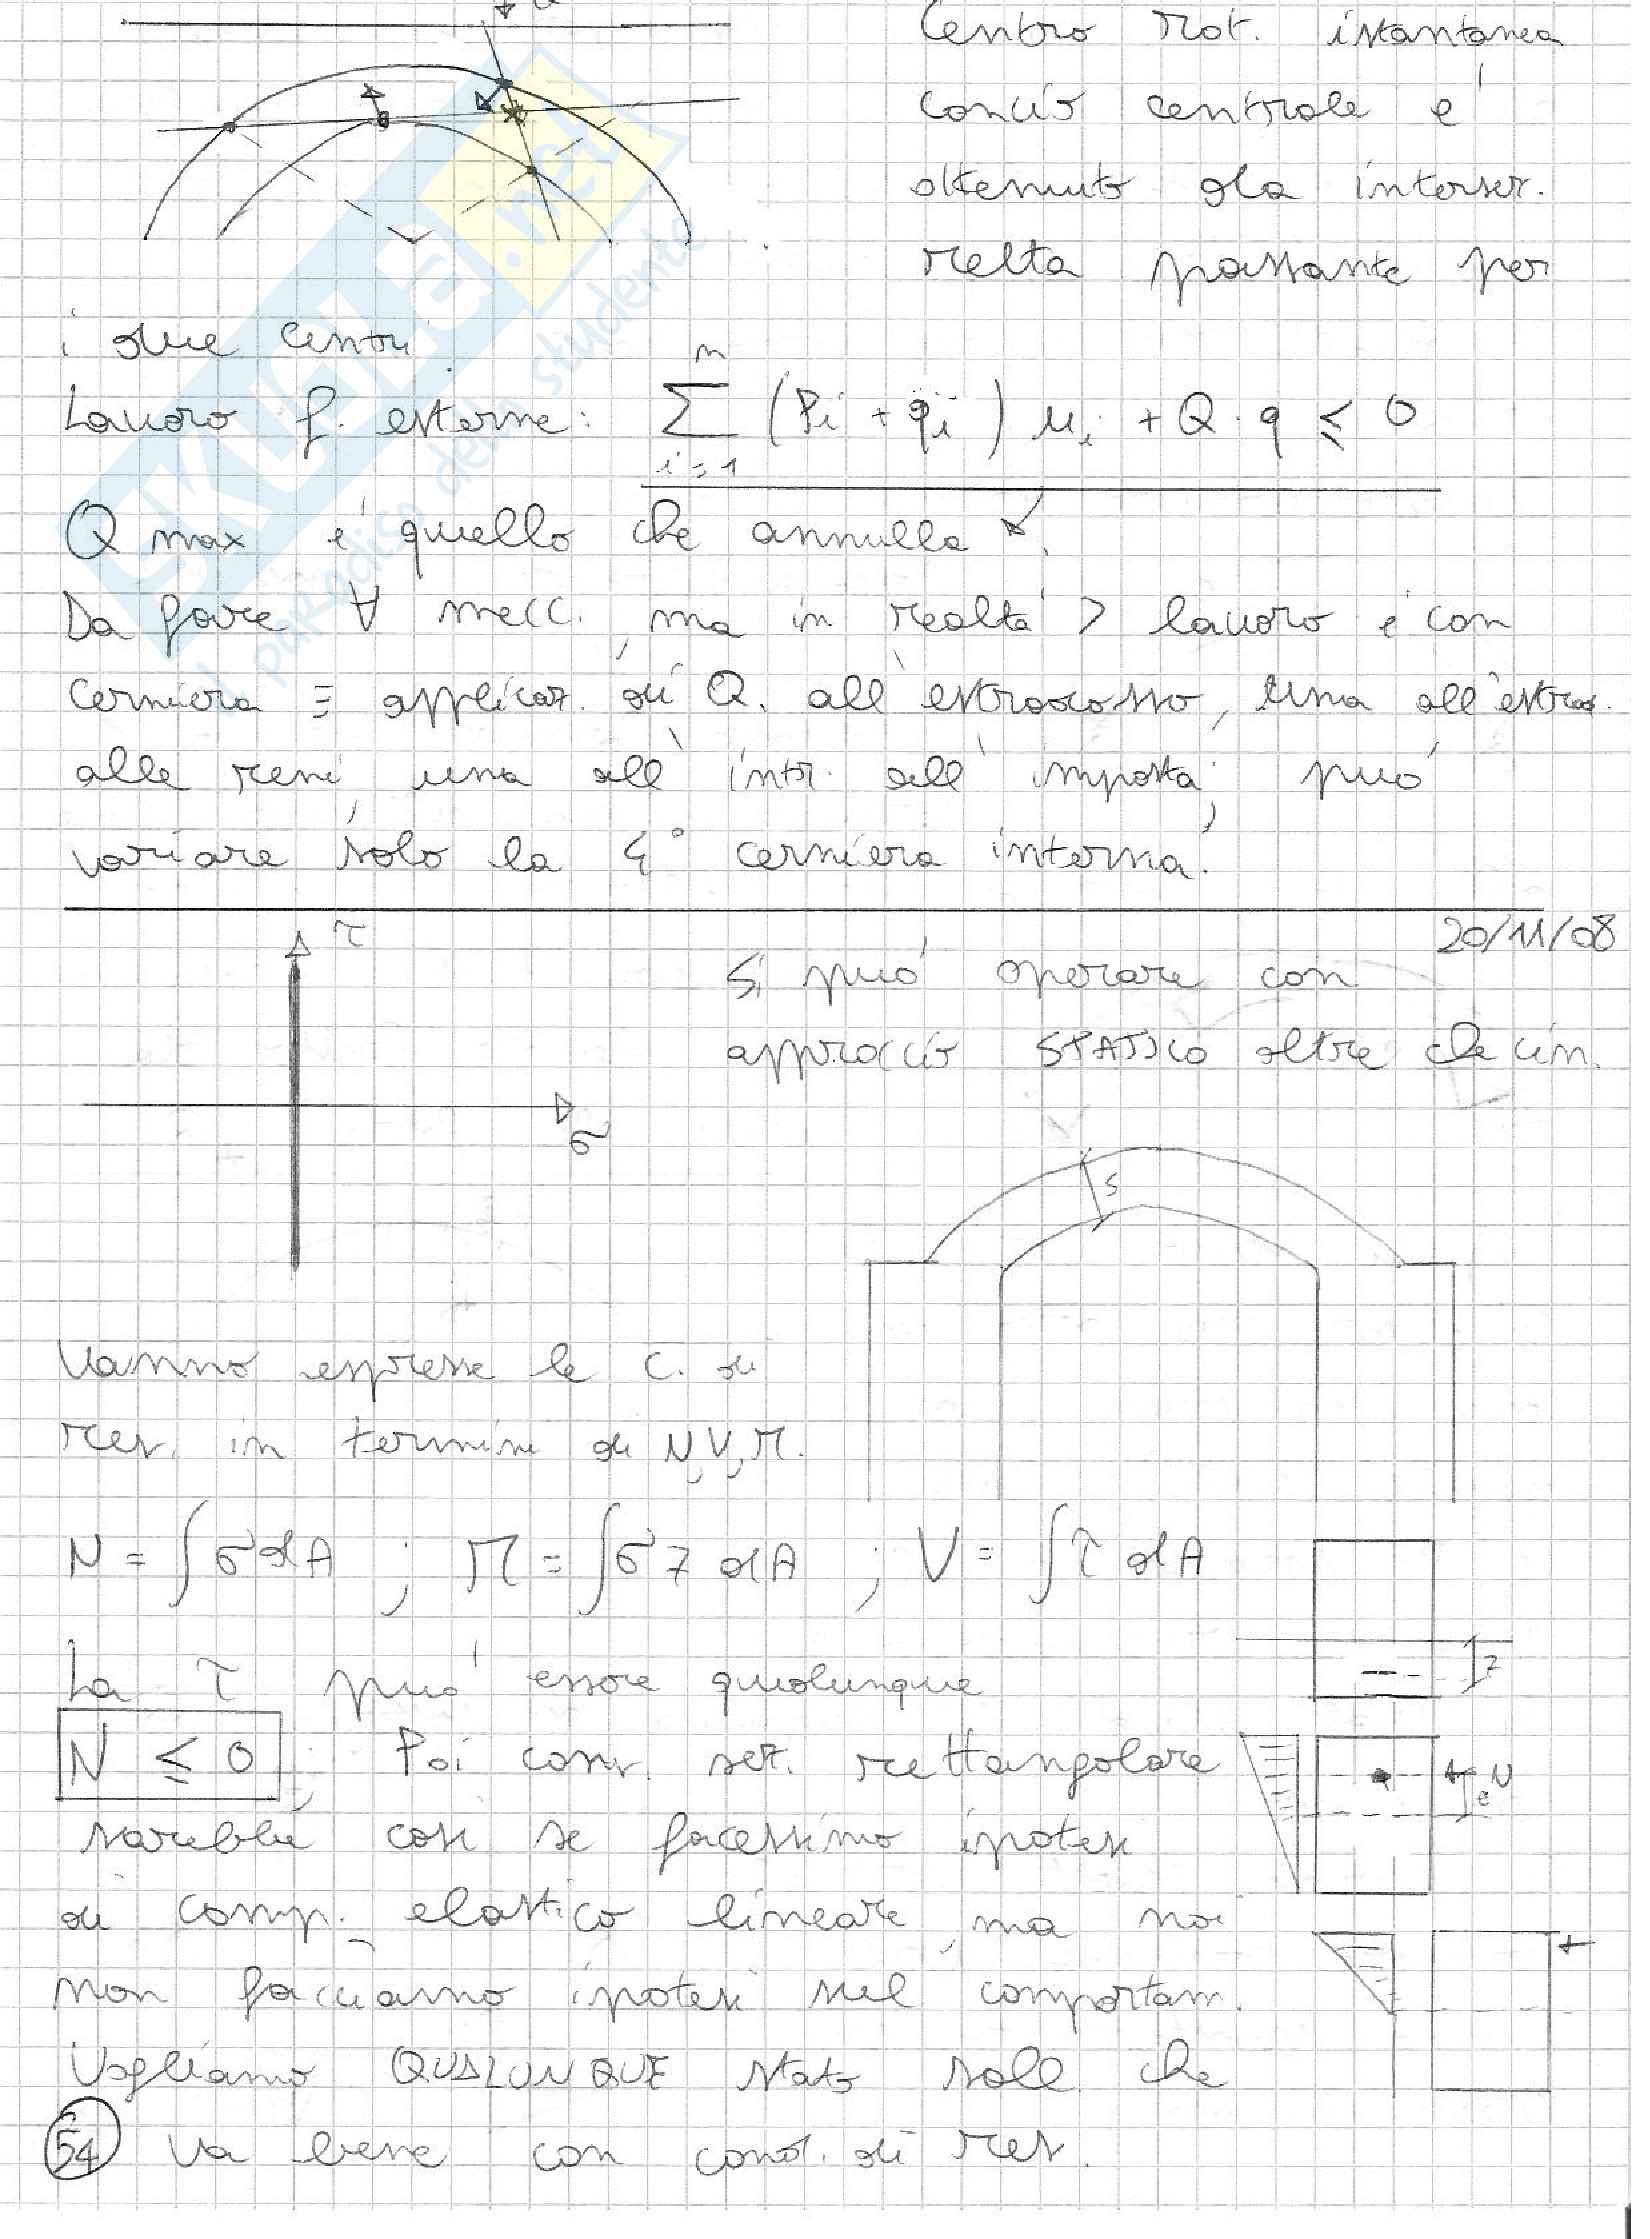 Centro rot. istantanea
concio centrale è
ottenuto da interser.
retta passante per
i due centri
Lavoro f. esterne: \sum_{i=1}^{n} (Pi + qi) ui + Q · q ≤ 0
Q max è quello che annulla
Da fare ∀ mecc., ma in realtà > lavoro è con
cerniera ≡ applicaz. di Q. all'estradosso, una all'estrad.
alle reni, una all'intr. all'imposta; può
variare solo la 4° cerniera interna.
20/11/08
τ
σ
Si può operare con
approccio STATICO oltre che cin.
s
Vanno espresse le c. di
res. in termini di N, V, M.
N = ∫σ dA ; M = ∫σ z dA ; V = ∫τ dA
z
La τ può essere qualunque
N ≤ 0 ; Poi cons. sez. rettangolare
N
e
sarebbe così se facessimo ipotesi
di comp. elastico lineare, ma noi
+
non facciamo ipotesi sul comportam.
Vogliamo QUALUNQUE stato soll. che
54 va bene con cond. di res.
SKUOLA.net
il paradiso dello studente